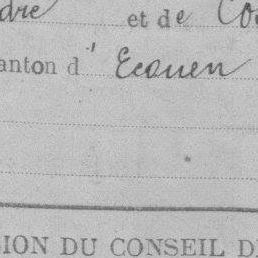 dre et de Co
anton d' Ecouen
ION DU CONSEIL D